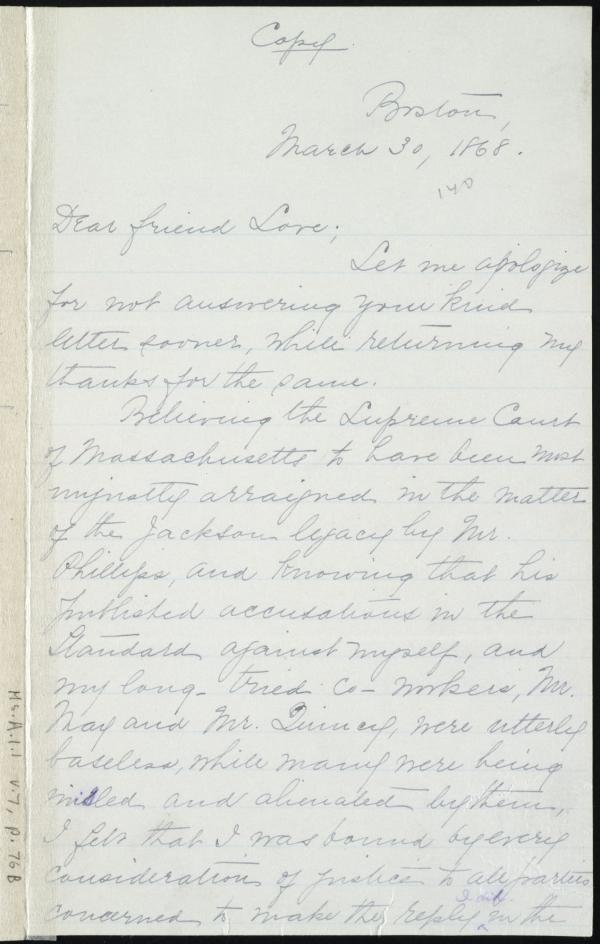 Copy.
Boston,
March 30, 1868.
140
Dear friend Love;
Let me apologize
for not answering your kind
letter sooner, while returning my
thanks for the same.
Believing the Supreme Court
of Massachusetts to have been most
unjustly arraigned in the matter
of the Jackson legacy by Mr.
Phillips, and knowing that his
published accusations in the
Standard against myself, and
my long-tried co-workers, Mr.
May and Mr. Quincy, were utterly
baseless, while many were being
misled and alienated by them,
I felt that I was bound by every
consideration of justice to all parties
concerned to make the reply I did in the
Ms.A.1.1 v.7, p.76B